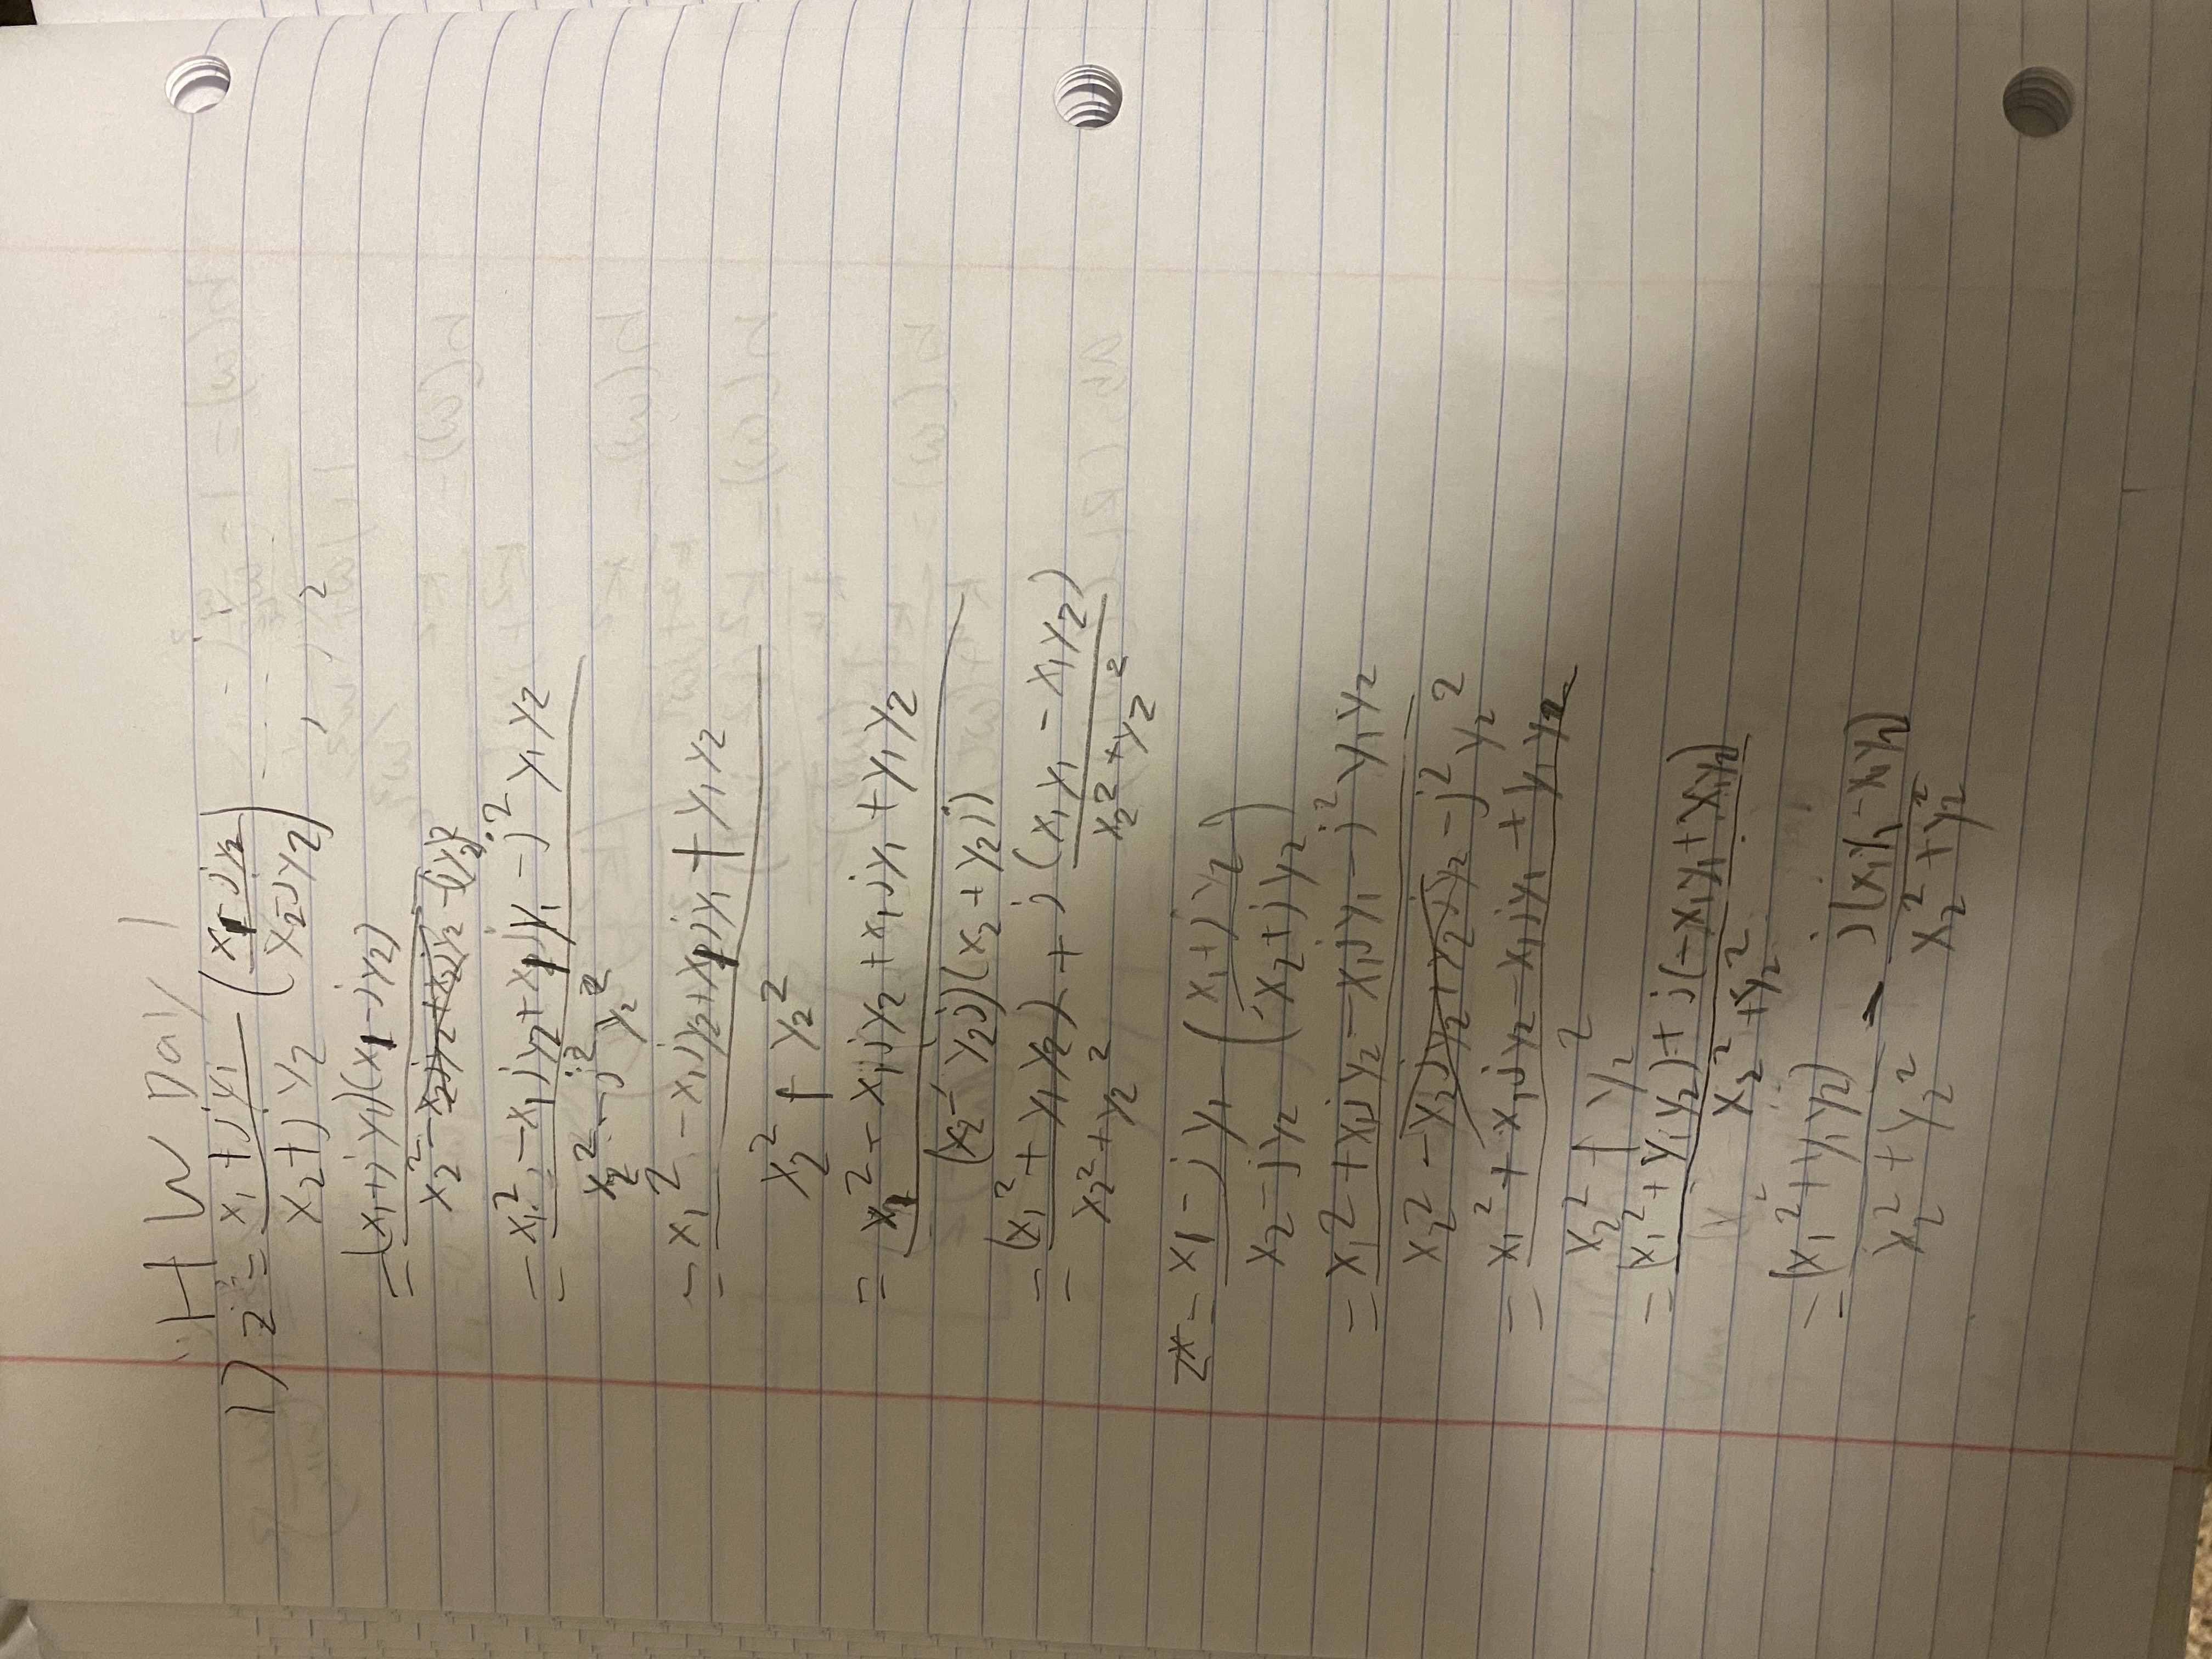 HW Day 1
1) z = (x₁ + jy₁)/(x₂ + jy₂) ((x₁ - jy₂)/(x₂ - jy₂))
= (x₁ + jy₁)(x₁ - jy₂)/(x₂² - x₂jy₂ + x₂jy₂ - (jy₂)²)
= (x₁² - x₁jy₂ + x₁jy₁ - j²y₁y₂)/(x₂² - j²y₂²)
= (x₁² - x₁jy₂ + x₁jy₁ + y₁y₂)/(x₂² + y₂²)
= (x₁² - x₁jy₂ + x₁jy₁ + y₁y₂)/((x₂ - y₂j)(x₂ + y₂j))
= (x₁² + y₁y₂)/(x₂² + y₂²) + j (x₁y₁ - x₁y₂)/(x₂² + y₂²)
z* = (x₁ - jy₁)/(x₂ - jy₂) ((x₁ + jy₂)/(x₂ + jy₂))
= (x₁² + x₁jy₂ - x₁jy₁ - j²y₁y₂)/(x₂² - x₂jy₂ + x₂jy₂ - j²y₂²)
= (x₁² + x₁jy₂ - x₁jy₁ + y₁y₂)/(x₂² + y₂²)
= ((x₁² + y₁y₂) + j(-x₁y₁ + x₁y₂))/(x₂² + y₂²)
= (x₁² + y₁y₂)/(x₂² + y₂²) - j(x₁y₁ - x₁y₂)/(x₂² + y₂²)